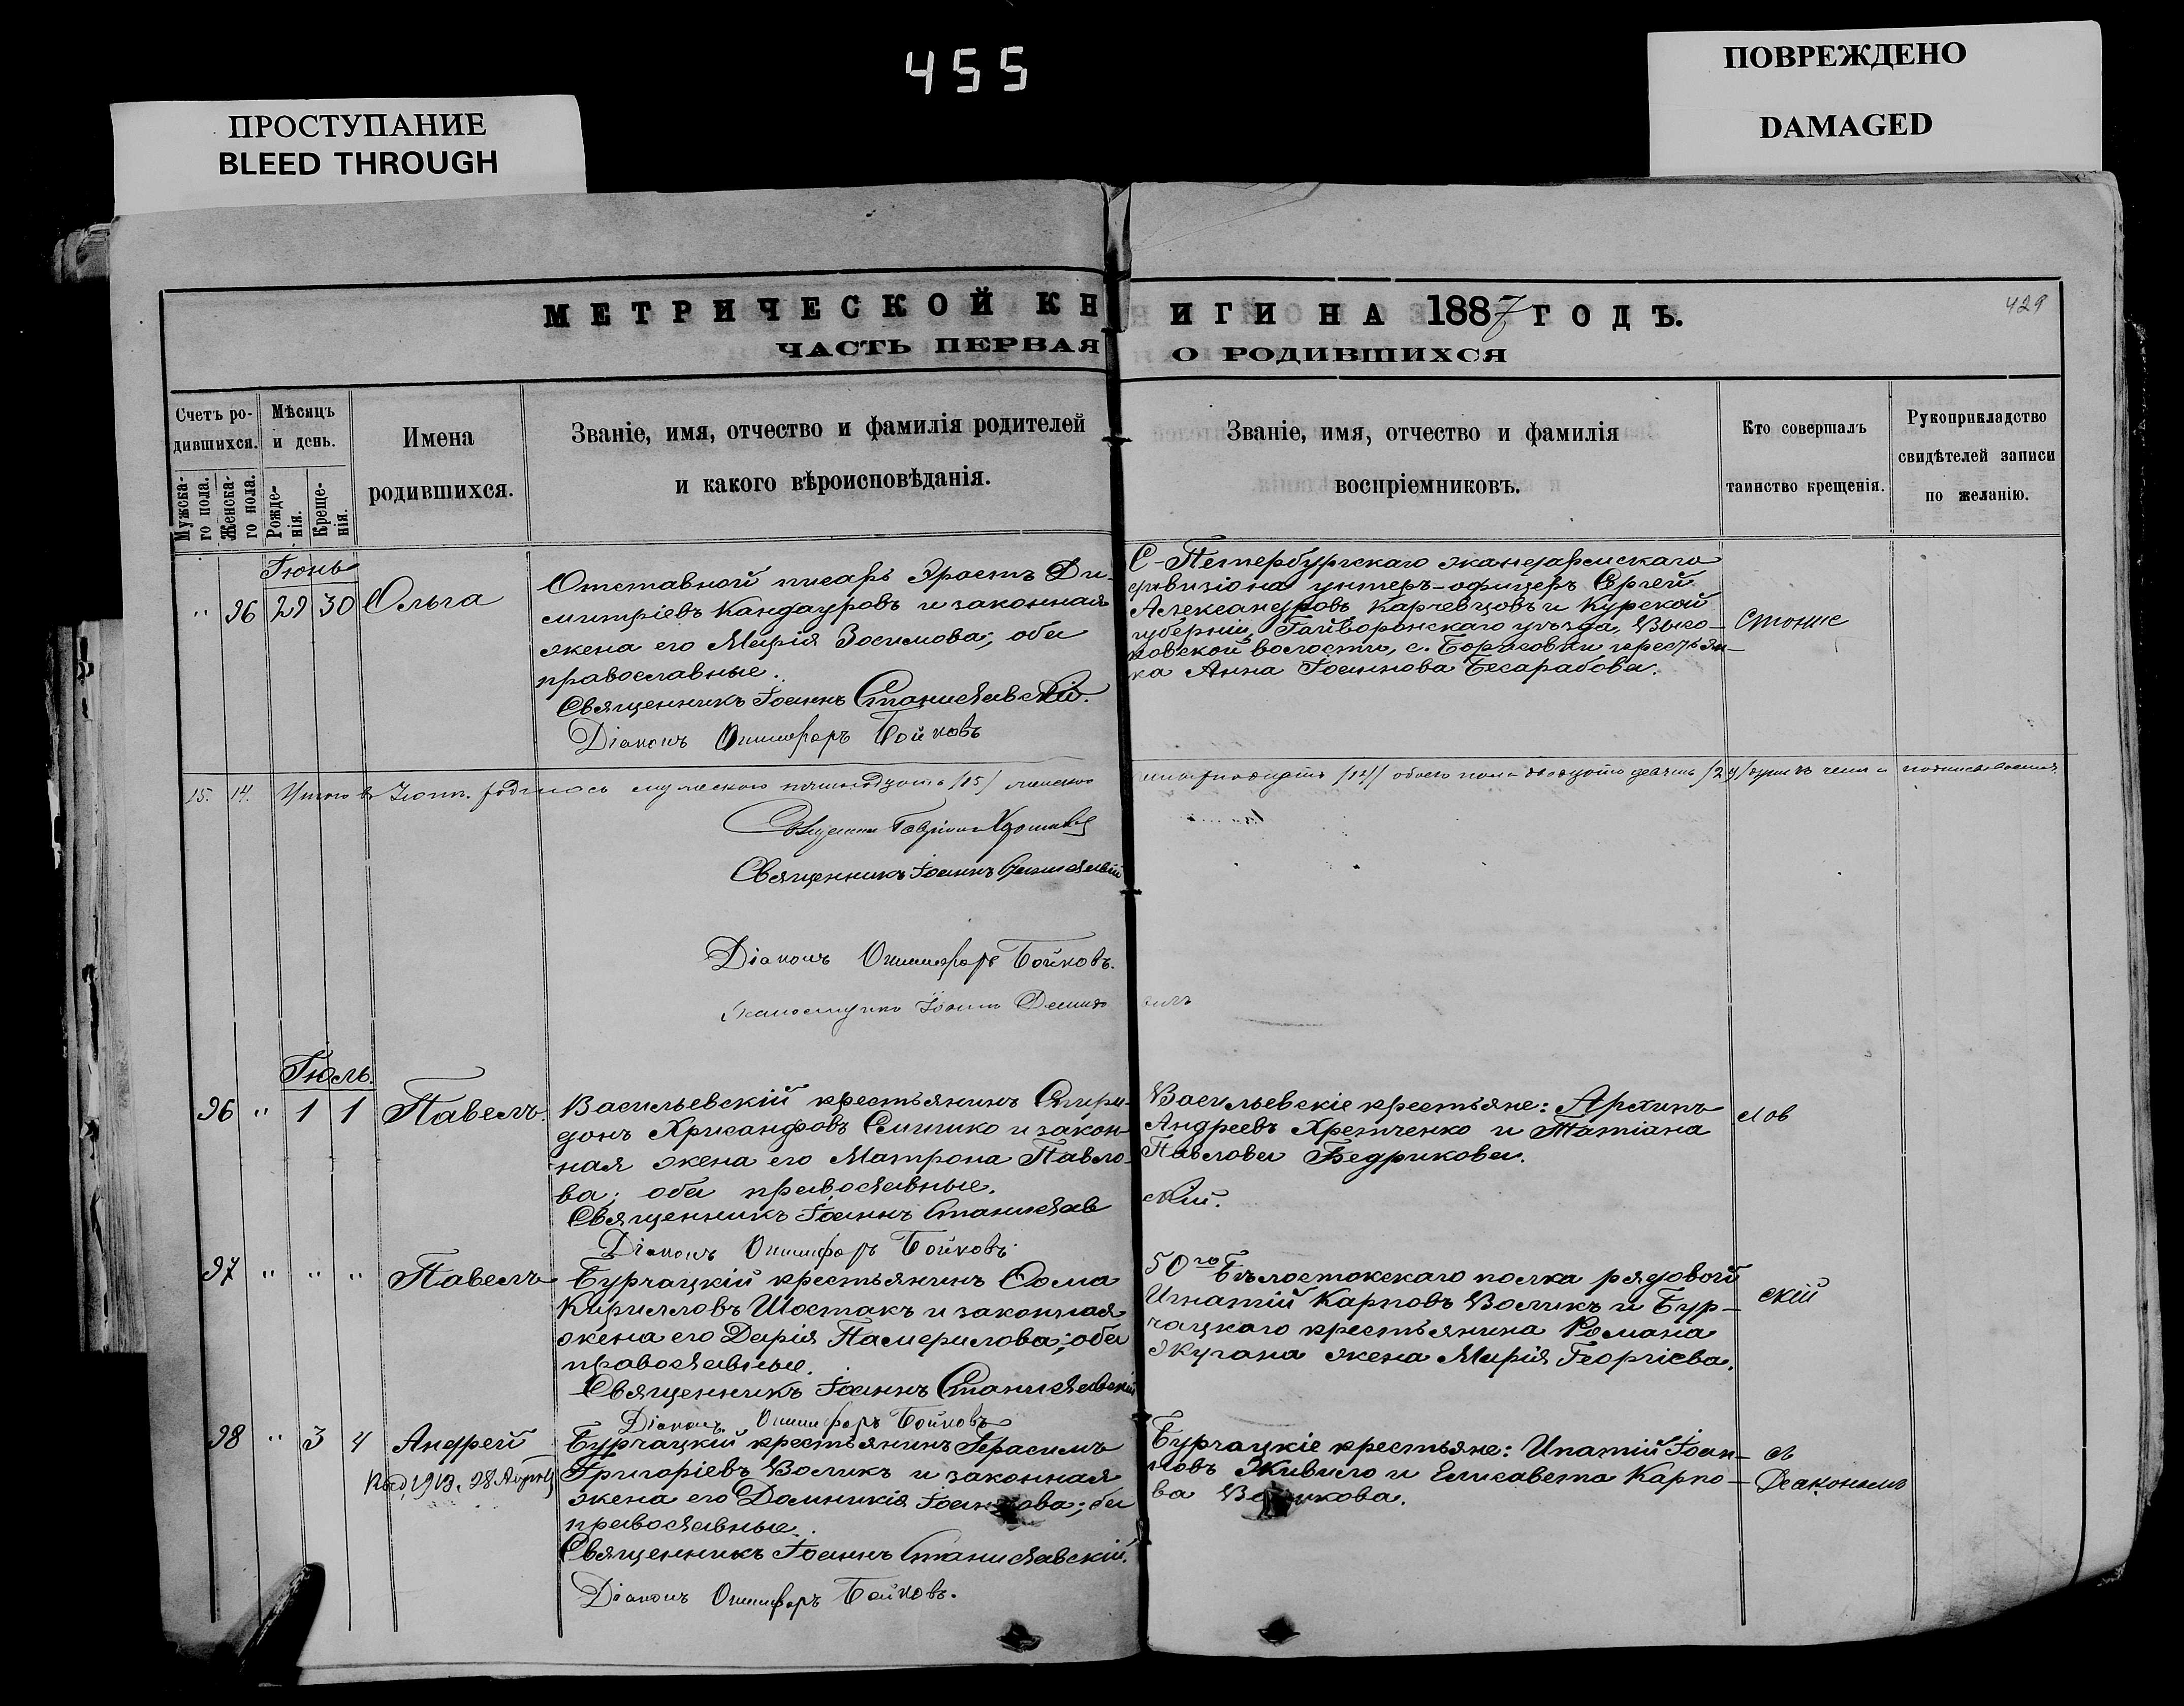 455
ПРОСТУПАНИЕ
BLEED THROUGH
ПОВРЕЖДЕНО
DAMAGED
МЕТРИЧЕСКОЙ КНИГИ НА 1887 ГОДЪ.
429
ЧАСТЬ ПЕРВАЯ О РОДИВШИХСЯ
Счетъ ро-
дившихся.
Мужска-
го пола.
Женска-
го пола.
Мѣсяцъ
и день.
Рожде-
нія.
Креще-
нія.
Имена
родившихся.
Званіе, имя, отчество и фамилія родителей
и какого вѣроисповѣданія.
Званіе, имя, отчество и фамилія
воспріемниковъ.
Кто совершалъ
таинство крещенія.
Рукоприкладство
свидѣтелей записи
по желанію.
Іюнь
" 96 29 30 Ольга
Отставной писарь Эрастъ Ди-
митріевъ Кандауровъ и законная
жена его Марія Зосимова; оба
православные.
Священникъ Іоаннъ Станиславскій.
Діаконъ Онисифоръ Бойковъ
С-Петербургскаго жандармскаго
дивизіона унтеръ-офицеръ Сергей
Александровъ Карчевцовъ и Курской
губерніи, Гайворонскаго уѣзда, Высо-
ковской волости, с. Борисовки крестьян-
ка Анна Іоаннова Бесарабова.
Стоние
15. 14. Итого въ Іюнѣ родилось мужескаго пятнадцать /15/ женскаго четырнадцать /14/ обоего пола двадцать девять /29/ подписываемся
Священникъ Гавріилъ
Священникъ Іоаннъ Станиславскій
Діаконъ Онисифоръ Бойковъ.
Псаломщикъ Іоаннъ
Іюль.
96 " 1 1 Павелъ.
Васильевскій крестьянинъ Спири-
донъ Хрисанфовъ Симико и закон-
ная жена его Матрона Павло-
ва; оба православные.
Священникъ Іоаннъ Станиславскій.
Діаконъ Онисифоръ Бойковъ.
Васильевскіе крестьяне: Архипъ
Андреевъ Хретченко и Татіана
Павлова Бедрикова.
лов
97 " " " Павелъ
Бурчацкій крестьянинъ Ѳома
Кирилловъ Шостакъ и законная
жена его Дарія Памфилова; оба
православные.
Священникъ Іоаннъ Станиславскій
Діаконъ Онисифоръ Бойковъ
50го Бѣлостокскаго полка рядовой
Игнатій Карповъ Воликъ и Бур-
чацкаго крестьянина Романа
Жугана жена Марія Георгіева.
скій
98 " 3 4 Андрей
1913. 28 Апрѣля
Бурчацкій крестьянинъ Герасимъ
Григоріевъ Воликъ и законная
жена его Домникія Іоаннова; оба
православные.
Священникъ Іоаннъ Станиславскій.
Діаконъ Онисифоръ Бойковъ.
Бурчацкіе крестьяне: Ипатій Іоан-
новъ Живило и Елисавета Карпо-
ва Воликова.
съ
Діакономъ